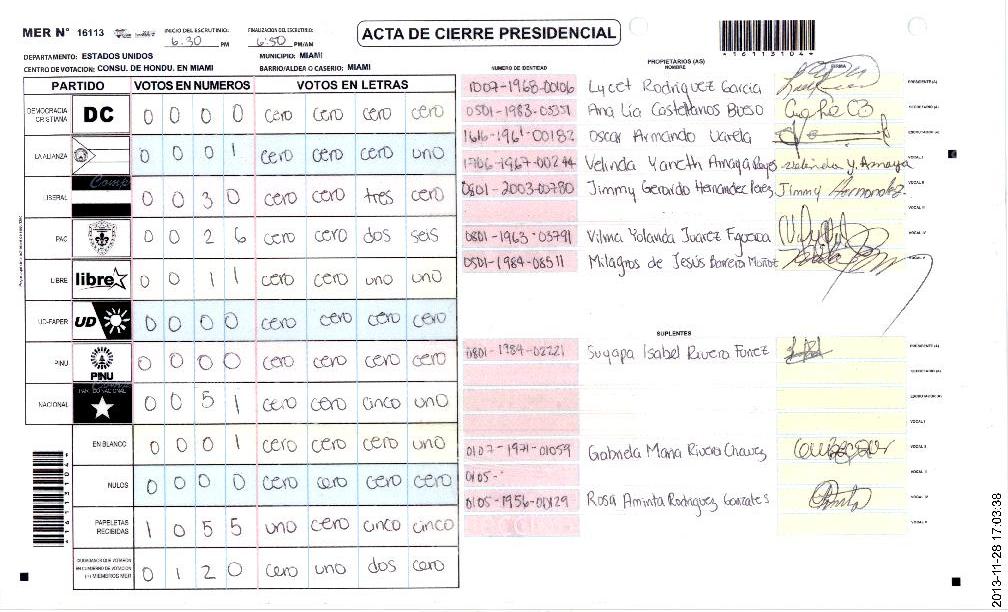 MER N° 16113
INICIO DEL ESCRUTINIO: 6:30 PM
FINALIZACION DEL ESCRUTINIO: 6:50 PM/AM
ACTA DE CIERRE PRESIDENCIAL
*16113104*
DEPARTAMENTO: ESTADOS UNIDOS
MUNICIPIO: MIAMI
CENTRO DE VOTACION: CONSU. DE HONDU. EN MIAMI
BARRIO/ALDEA O CASERIO: MIAMI
PARTIDO VOTOS EN NUMEROS VOTOS EN LETRAS
DEMOCRACIA CRISTIANA DC 0 0 0 0 cero cero cero cero
LA ALIANZA 0 0 0 1 cero cero cero uno
LIBERAL 0 0 3 0 cero cero tres cero
PAC 0 0 2 6 cero cero dos seis
LIBRE libre 0 0 1 1 cero cero uno uno
UD-FAPER UD 0 0 0 0 cero cero cero cero
PINU PINU 0 0 0 0 cero cero cero cero
NACIONAL 0 0 5 1 cero cero cinco uno
EN BLANCO 0 0 0 1 cero cero cero uno
NULOS 0 0 0 0 cero cero cero cero
PAPELETAS RECIBIDAS 1 0 5 5 uno cero cinco cinco
CIUDADANOS QUE VOTARON EN CUADERNO DE VOTACION (+) MIEMBROS MER 0 1 2 0 cero uno dos cero
*16113104*
NUMERO DE IDENTIDAD
PROPIETARIOS (AS)
NOMBRE
FIRMA
1007-1968-00106 Lycet Rodriguez Garcia PRESIDENTE (A)
0501-1983-05351 Ana Lia Castellanos Bueso SECRETARIO (A)
Oscar Armando Varela ESCRUTADOR (A)
1706-1967-00244 Velinda Yaneth Amaya Reyes Velinda Y. Amaya VOCAL I
0801-2003-00780 Jimmy Gerardo Hernandez Perez Jimmy Hernandez VOCAL II
VOCAL III
0801-1963-03791 Vilma Yolanda Juarez Figueroa VOCAL IV
0501-1984-08511 Milagros de Jesús Barrera Muñoz VOCAL V
SUPLENTES
0801-1984-02221 Suyapa Isabel Rivera Funez PRESIDENTE (A)
SECRETARIO (A)
ESCRUTADOR (A)
VOCAL I
0107-1971-01059 Gabriela Maria Rivera Chavez VOCAL II
0105- VOCAL III
0105-1956-00129 Rosa Aminta Rodriguez Gonzales VOCAL IV
VOCAL V
2013-11-28 17:03:38